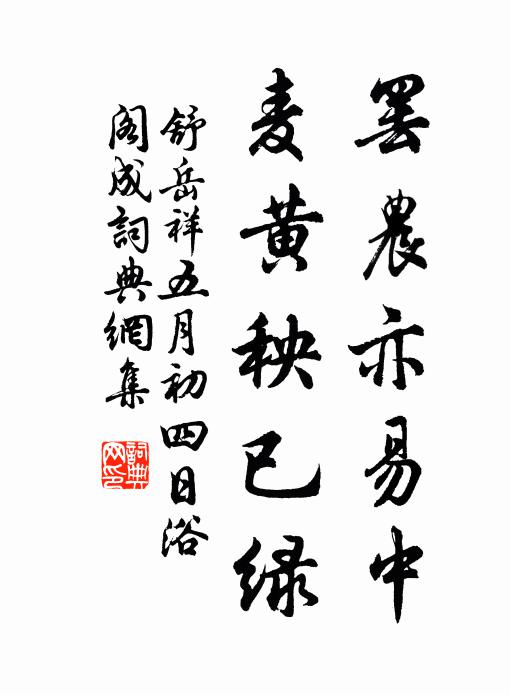 罢農亦易中
麦黄秧已绿
舒岳祥五月初四日浴
阁成詞典網集
詞典网印